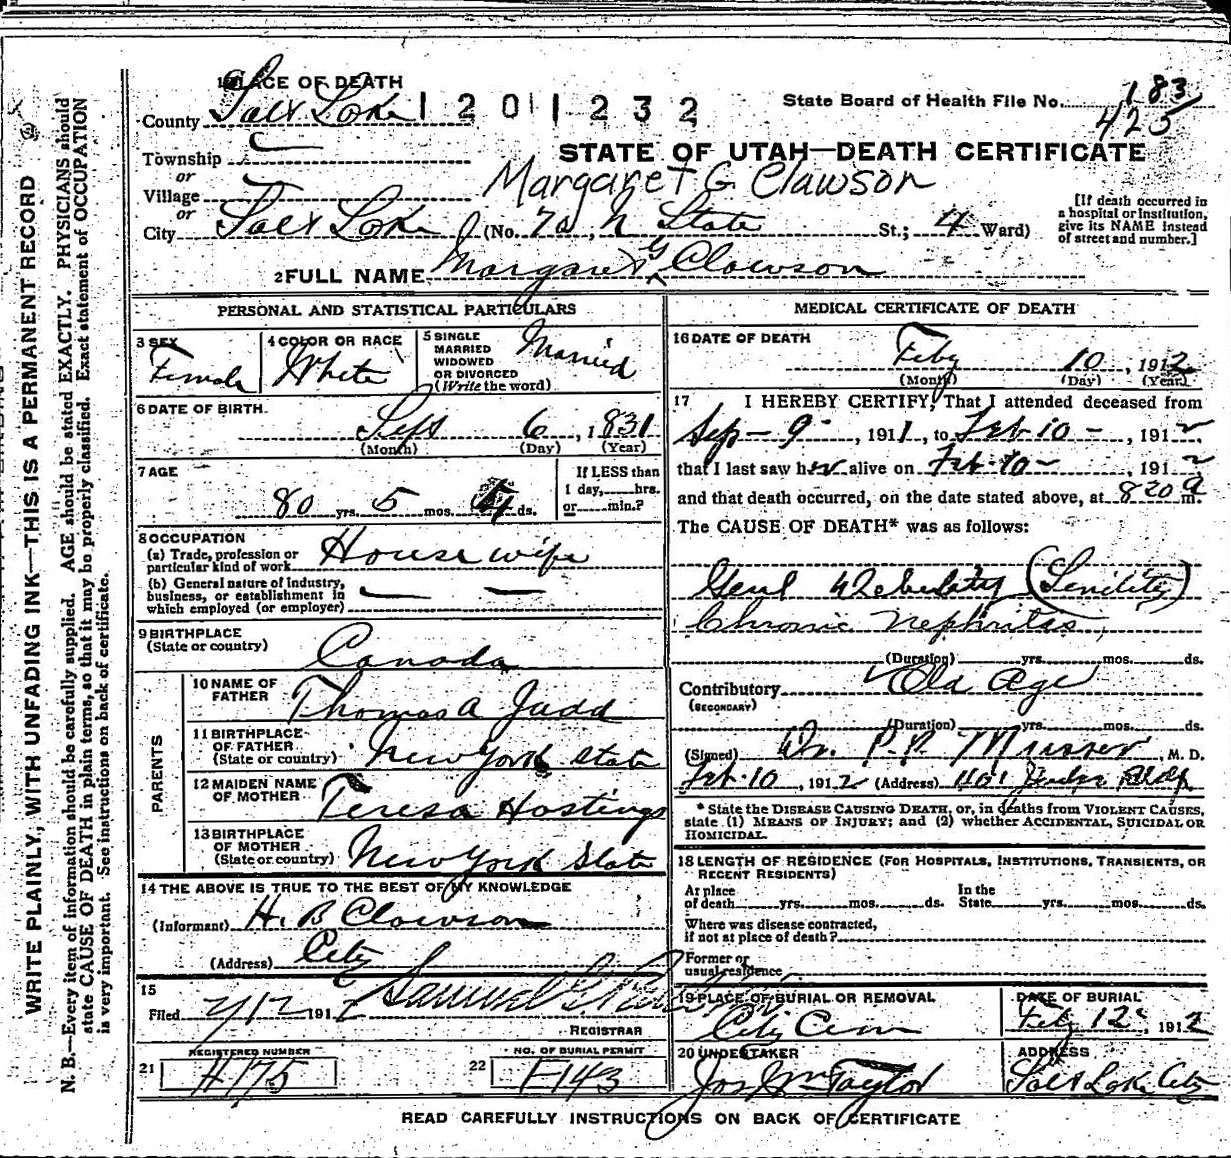 1 PLACE OF DEATH
County Salt Lake
1201232
State Board of Health File No. 183
425
STATE OF UTAH—DEATH CERTIFICATE
Township
or
Village
or
Margaret G Clawson
City Salt Lake (No. 70, N State St.; 4 Ward)
[If death occurred in
a hospital or institution,
give its NAME instead
of street and number.]
2 FULL NAME Margaret G Clawson
PERSONAL AND STATISTICAL PARTICULARS
3 SEX
Female
4 COLOR OR RACE
White
5 SINGLE
MARRIED
WIDOWED
OR DIVORCED
(Write the word)
Married
6 DATE OF BIRTH.
Sept 6, 1831
(Month) (Day) (Year)
7 AGE
80 yrs. 5 mos. 4 ds.
If LESS than
1 day, hrs.
or min.?
8 OCCUPATION
(a) Trade, profession or
particular kind of work House wife
(b) General nature of industry,
business, or establishment in
which employed (or employer)
9 BIRTHPLACE
(State or country)
Canada
PARENTS
10 NAME OF
FATHER
Thomas A Judd
11 BIRTHPLACE
OF FATHER
(State or country)
New York State
12 MAIDEN NAME
OF MOTHER
Teresa Hastings
13 BIRTHPLACE
OF MOTHER
(State or country)
New York State
14 THE ABOVE IS TRUE TO THE BEST OF MY KNOWLEDGE
(Informant) H. B Clawson
(Address) City
15
Filed 2/12 1912 Samuel G.
REGISTRAR
21 REGISTERED NUMBER
H175
22 NO. OF BURIAL PERMIT
F143
MEDICAL CERTIFICATE OF DEATH
16 DATE OF DEATH
Feby 10, 1912
(Month) (Day) (Year)
17 I HEREBY CERTIFY, That I attended deceased from
Sep-9-, 1911, to Feb-10-, 1912,
that I last saw her alive on Feb-10-, 1912
and that death occurred, on the date stated above, at 820 a m.
The CAUSE OF DEATH* was as follows:
Genl Debility (Senility)
Chronic Nephritis,
(Duration) yrs. mos. ds.
Contributory Old Age
(SECONDARY)
(Duration) yrs. mos. ds.
(Signed) Dr. P. P. Musser M. D.
Feb-10, 1912 (Address) 1101 Bldg
* State the DISEASE CAUSING DEATH, or, in deaths from VIOLENT CAUSES,
state (1) MEANS OF INJURY; and (2) whether ACCIDENTAL, SUICIDAL OR
HOMICIDAL.
18 LENGTH OF RESIDENCE (FOR HOSPITALS, INSTITUTIONS, TRANSIENTS, OR
RECENT RESIDENTS)
At place
of death yrs. mos. ds.
In the
State yrs. mos. ds.
Where was disease contracted,
if not at place of death?
Former or
usual residence
19 PLACE OF BURIAL OR REMOVAL
City Cem
DATE OF BURIAL
Feby 12, 1912
20 UNDERTAKER
Jos Wm Taylor
ADDRESS
Salt Lake City
READ CAREFULLY INSTRUCTIONS ON BACK OF CERTIFICATE
WRITE PLAINLY, WITH UNFADING INK—THIS IS A PERMANENT RECORD
N. B.—Every item of information should be carefully supplied. AGE should be stated EXACTLY. PHYSICIANS should
state CAUSE OF DEATH in plain terms, so that it may be properly classified. Exact statement of OCCUPATION
is very important. See instructions on back of certificate.